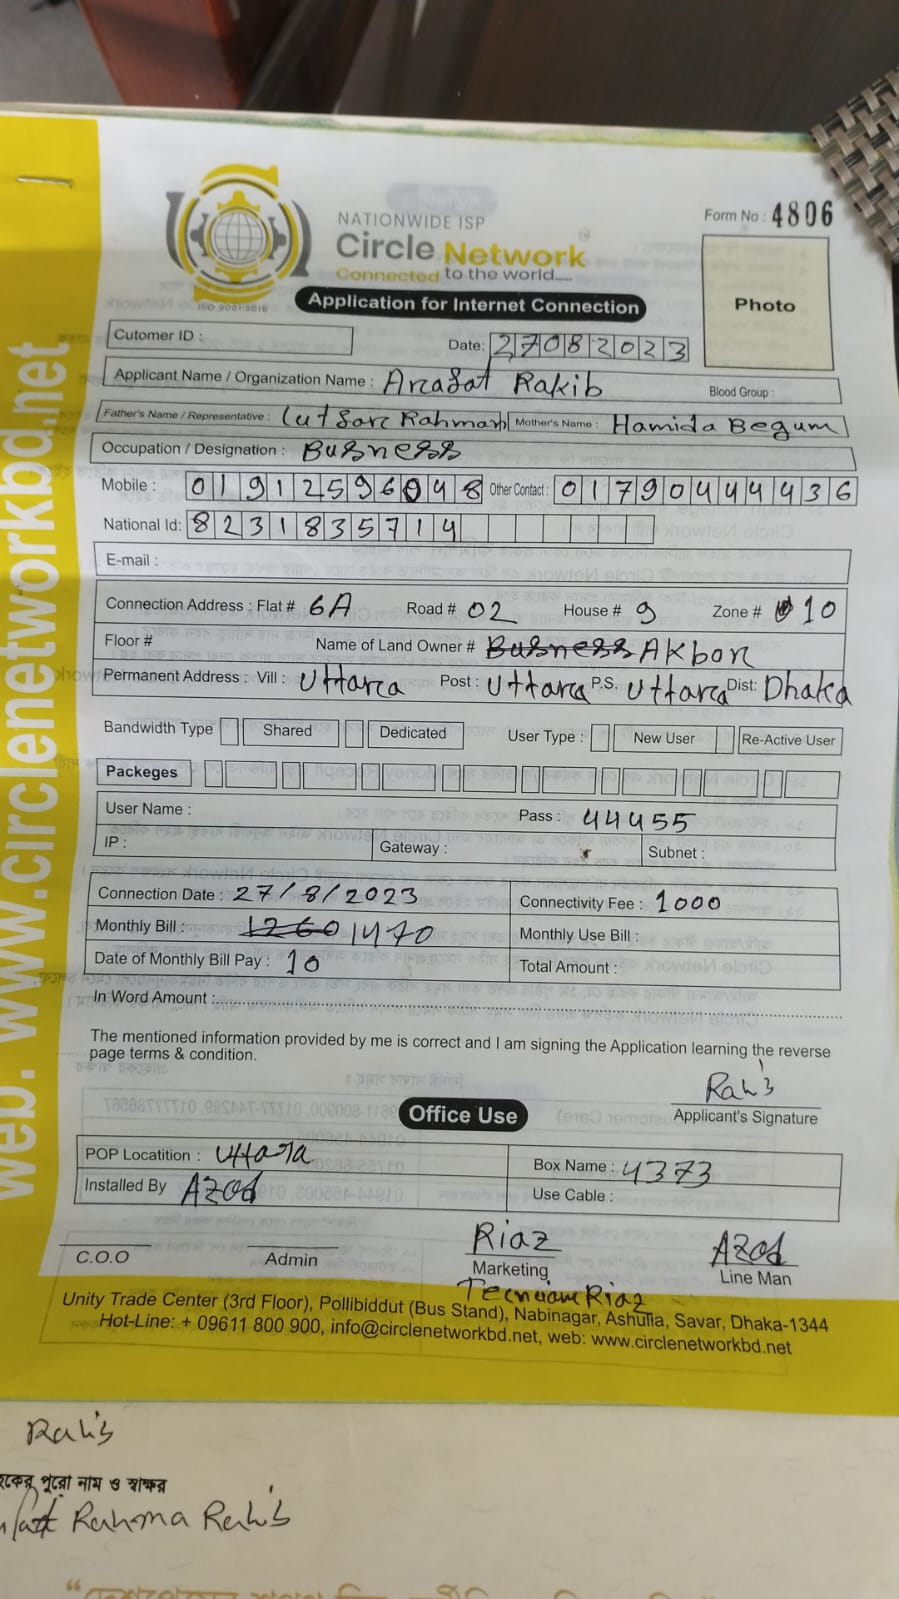 web: www.circlenetworkbd.net
NATIONWIDE ISP
Circle Network
Connected to the world.....
ISO 9001:2015
Form No : 4806
Application for Internet Connection
Photo
Cutomer ID :
Date: 27082023
Applicant Name / Organization Name : Arafat Rakib Blood Group :
Father's Name / Representative : Lutfore Rahman Mother's Name : Hamida Begum
Occupation / Designation : Busness
Mobile : 01912596048 Other Contact : 01790444436
National Id: 8231835714
E-mail :
Connection Address : Flat # 6A Road # 02 House # 9 Zone # 10
Floor # Name of Land Owner # Busness Akbor
Permanent Address : Vill : Uttara Post : Uttara P.S. Uttara Dist: Dhaka
Bandwidth Type Shared Dedicated User Type : New User Re-Active User
Packeges
User Name : Pass : 44455
IP : Gateway : Subnet :
Connection Date : 27/8/2023 Connectivity Fee : 1000
Monthly Bill : 1260 1470 Monthly Use Bill :
Date of Monthly Bill Pay : 10 Total Amount :
In Word Amount :
The mentioned information provided by me is correct and I am signing the Application learning the reverse
page terms & condition.
Rakib
Applicant's Signature
Office Use
POP Locatition : Uttara Box Name : 4373
Installed By Azad Use Cable :
Riaz Azad
C.O.O Admin Marketing Line Man
Riaz
Unity Trade Center (3rd Floor), Pollibiddut (Bus Stand), Nabinagar, Ashulia, Savar, Dhaka-1344
Hot-Line: + 09611 800 900, info@circlenetworkbd.net, web: www.circlenetworkbd.net
Rakib
পুরো নাম ও স্বাক্ষর
Rahma Rakib